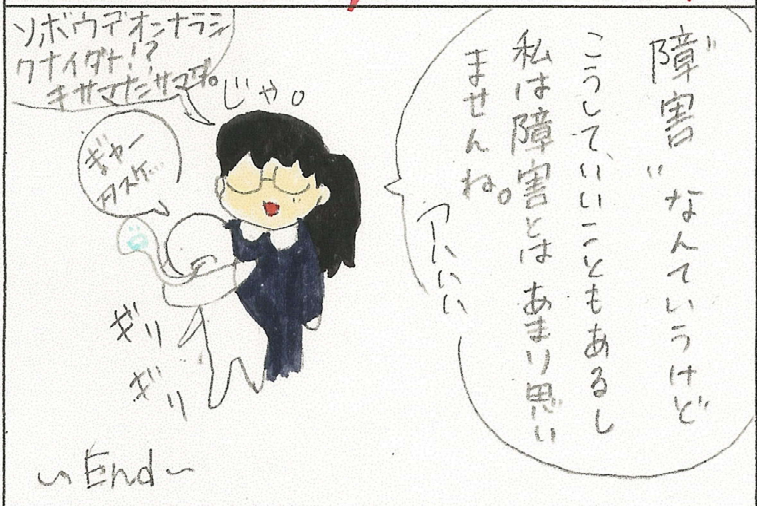 “障害”なんていうけど
こうして、いいこともあるし
私は障害とは あまり思い
ませんね。
アハハハ
ソボウデオンナラシ
クナイダト!?
じゃ。
ギャー
タスケ…
ギリ
ギリ
～End～